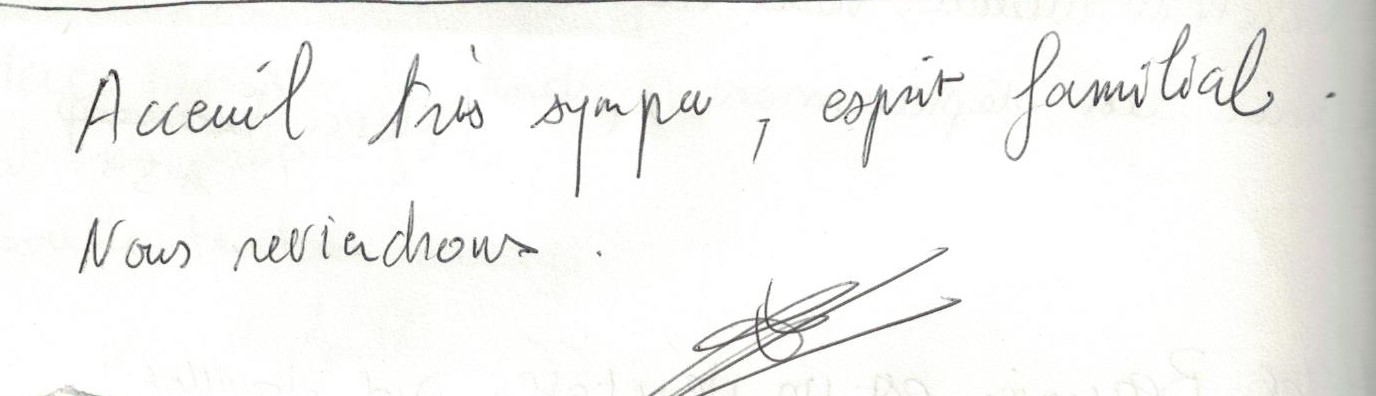 Acceuil très sympa, esprit familial.
Nous reviendrons.